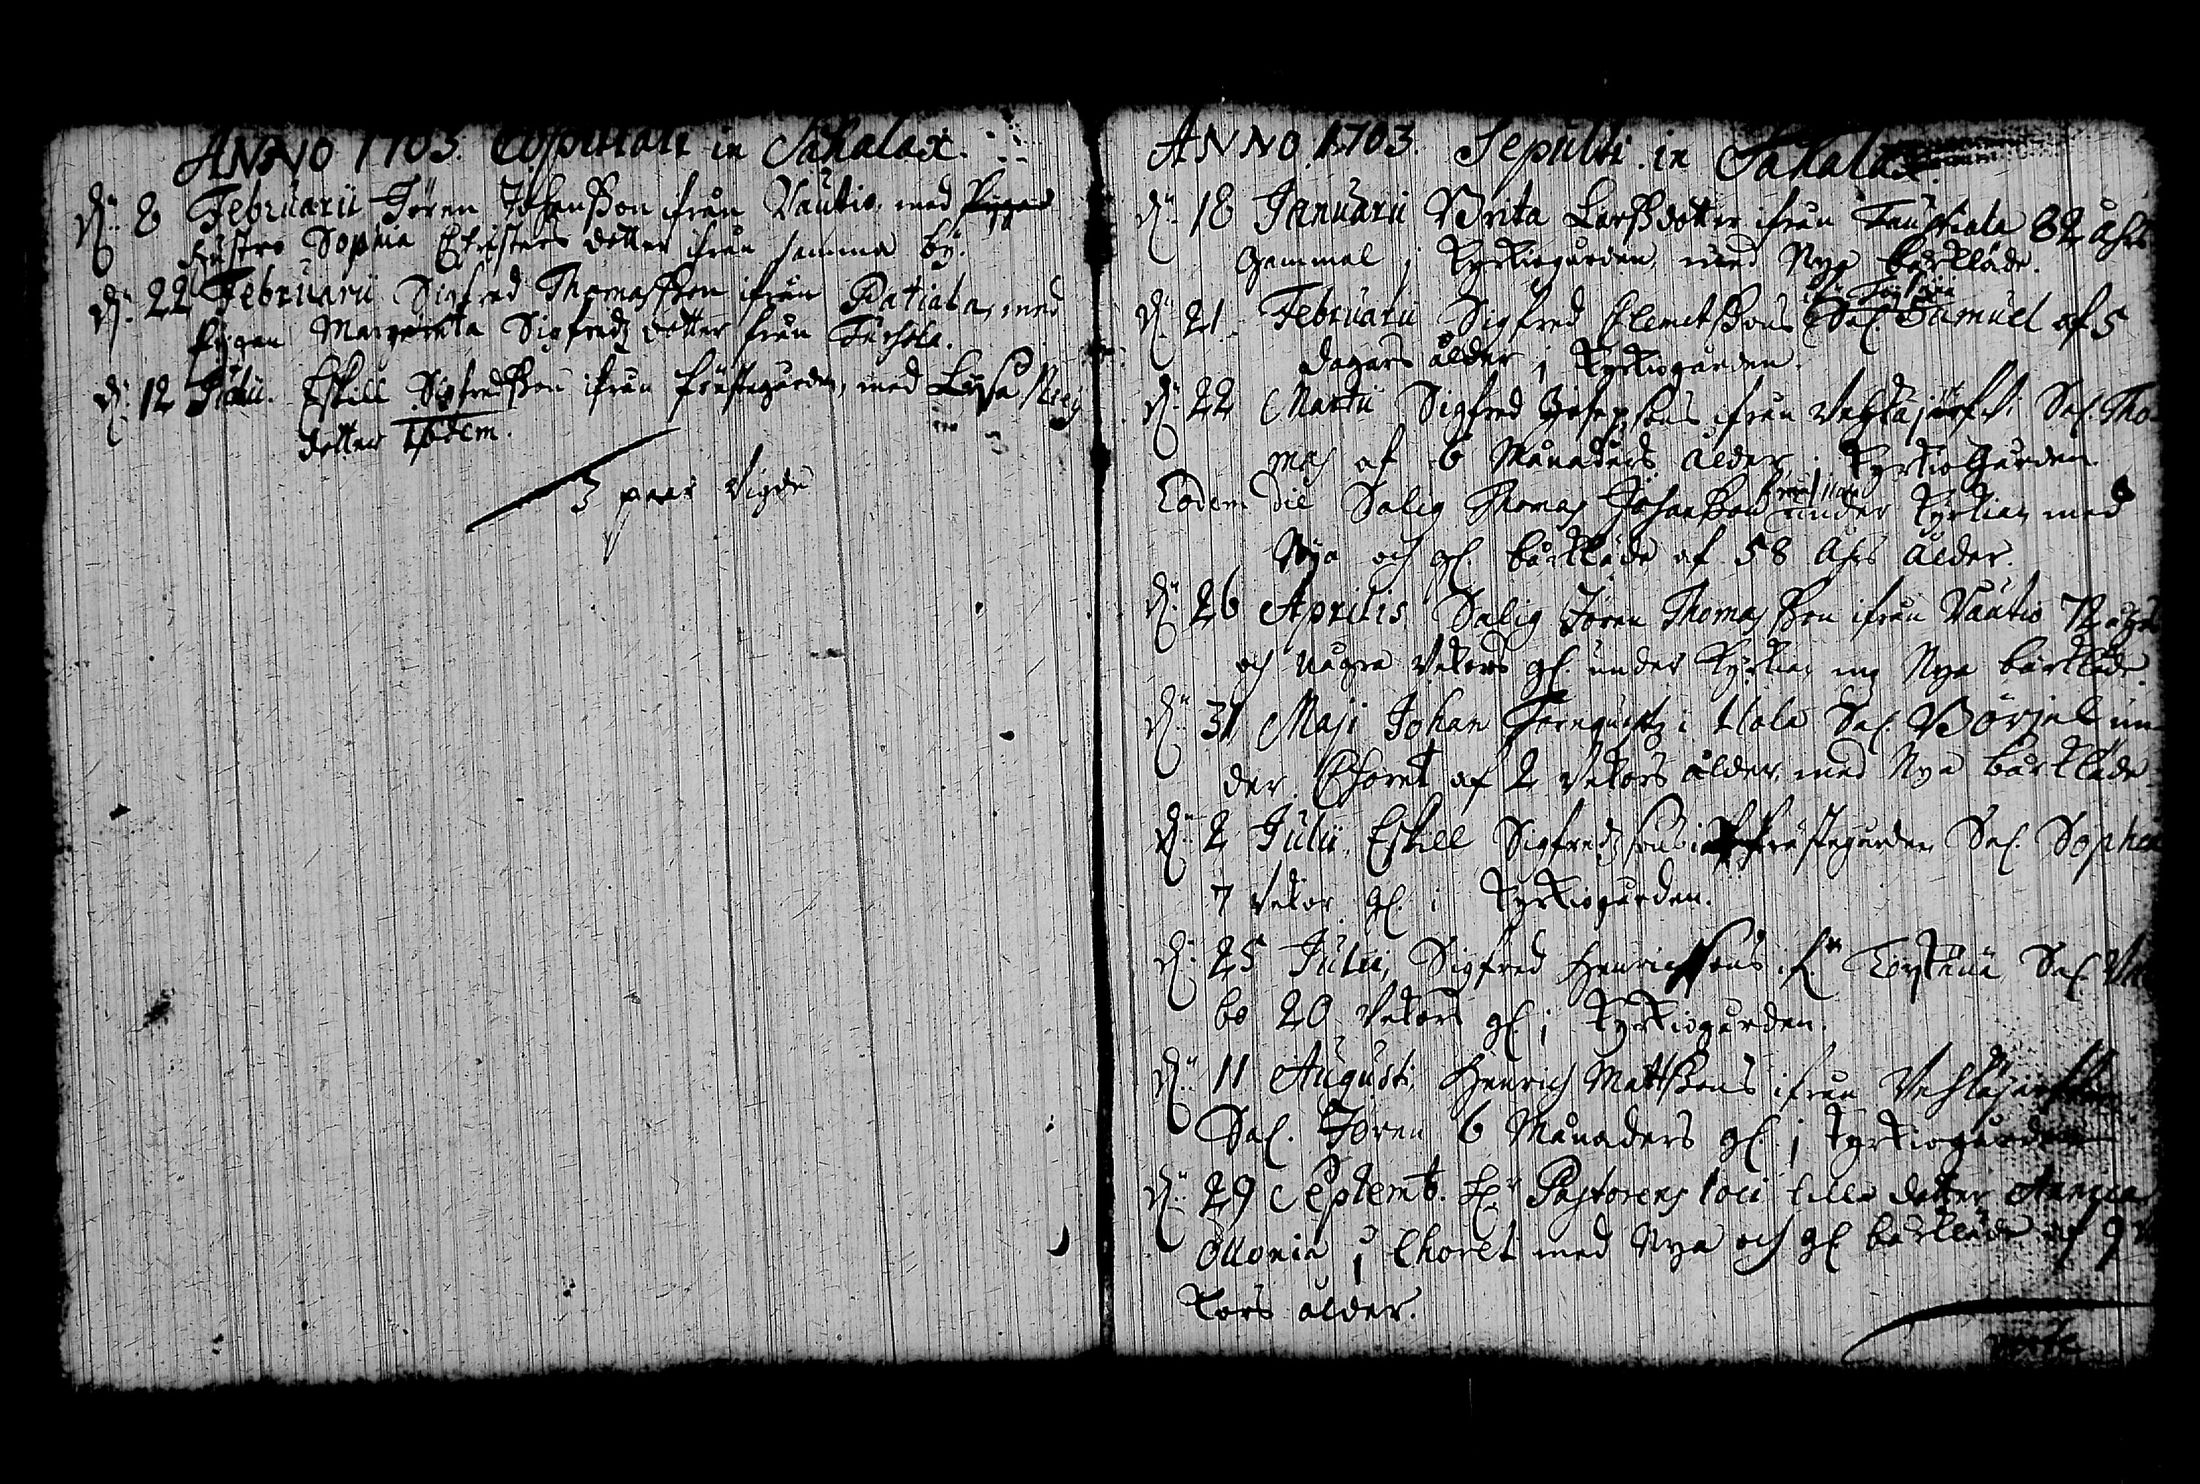 ANNO 1703. Copulati in Sahalax.
D: 8 Februarii Jören Johansson ifrån Vautio, med Pigan
hustro Sophia Christers dotter ifrån samma by.
D: 22 Februarii Sigfred Thomasson ifrån Patiala, med
pigan Margareta Sigfredz dotter från
D: 12 Eskill Sigfredsson ifrån prästegården, med Lysa
dotter ibidem.
3 paar vigde
ANNO 1703. Sepulti in Sahalax
D: 18 Januarii Brita Larssdotter ifrån 82 åhrs
Gammal i Kyrkiogården, med Nya bårkläde.
D: 21 Februarii Sigfred Clemetssons Sal. Samuel af 5
dagars ålder i Kyrkiogården.
D: 22 Martii Sigfred Josepsons ifrån Sal. Tho-
mas af 6 Månaders ålder i Kyrkiogården.
Eodem die Salig Thomas Johansson under Kyrkian med
Nya och gl. bårkläde af 58 åhrs ålder.
D: 26 Aprilis Salig Jören Thomasson ifrån Vautio 72 åhrs
och några Vekors gl. under Kyrkian mz Nya bårkläde.
D: 31 Maji Johan Tornquistz i Sal. Börjel un-
der Choret af 2 Vekors ålder, med Nya bårkläde
D: 2 Julii, Eskill Sigfredzsons i Prästegården Sal. Sophia
7 Vekor gl. i Kyrkiogården.
D: 25 Julii, Sigfred Henrichssons Sal.
bo 20 Vekors gl. i Kyrkiogården.
D: 11 Augusti, Henrich Mattssons ifrån
Sal. Jören 6 Månaders gl. i Kyrkiogården
D: 29 Septemb. Pastorens loci lilla dotter
i Choret med Nya och gl. bårkläde af 9
kors ålder.